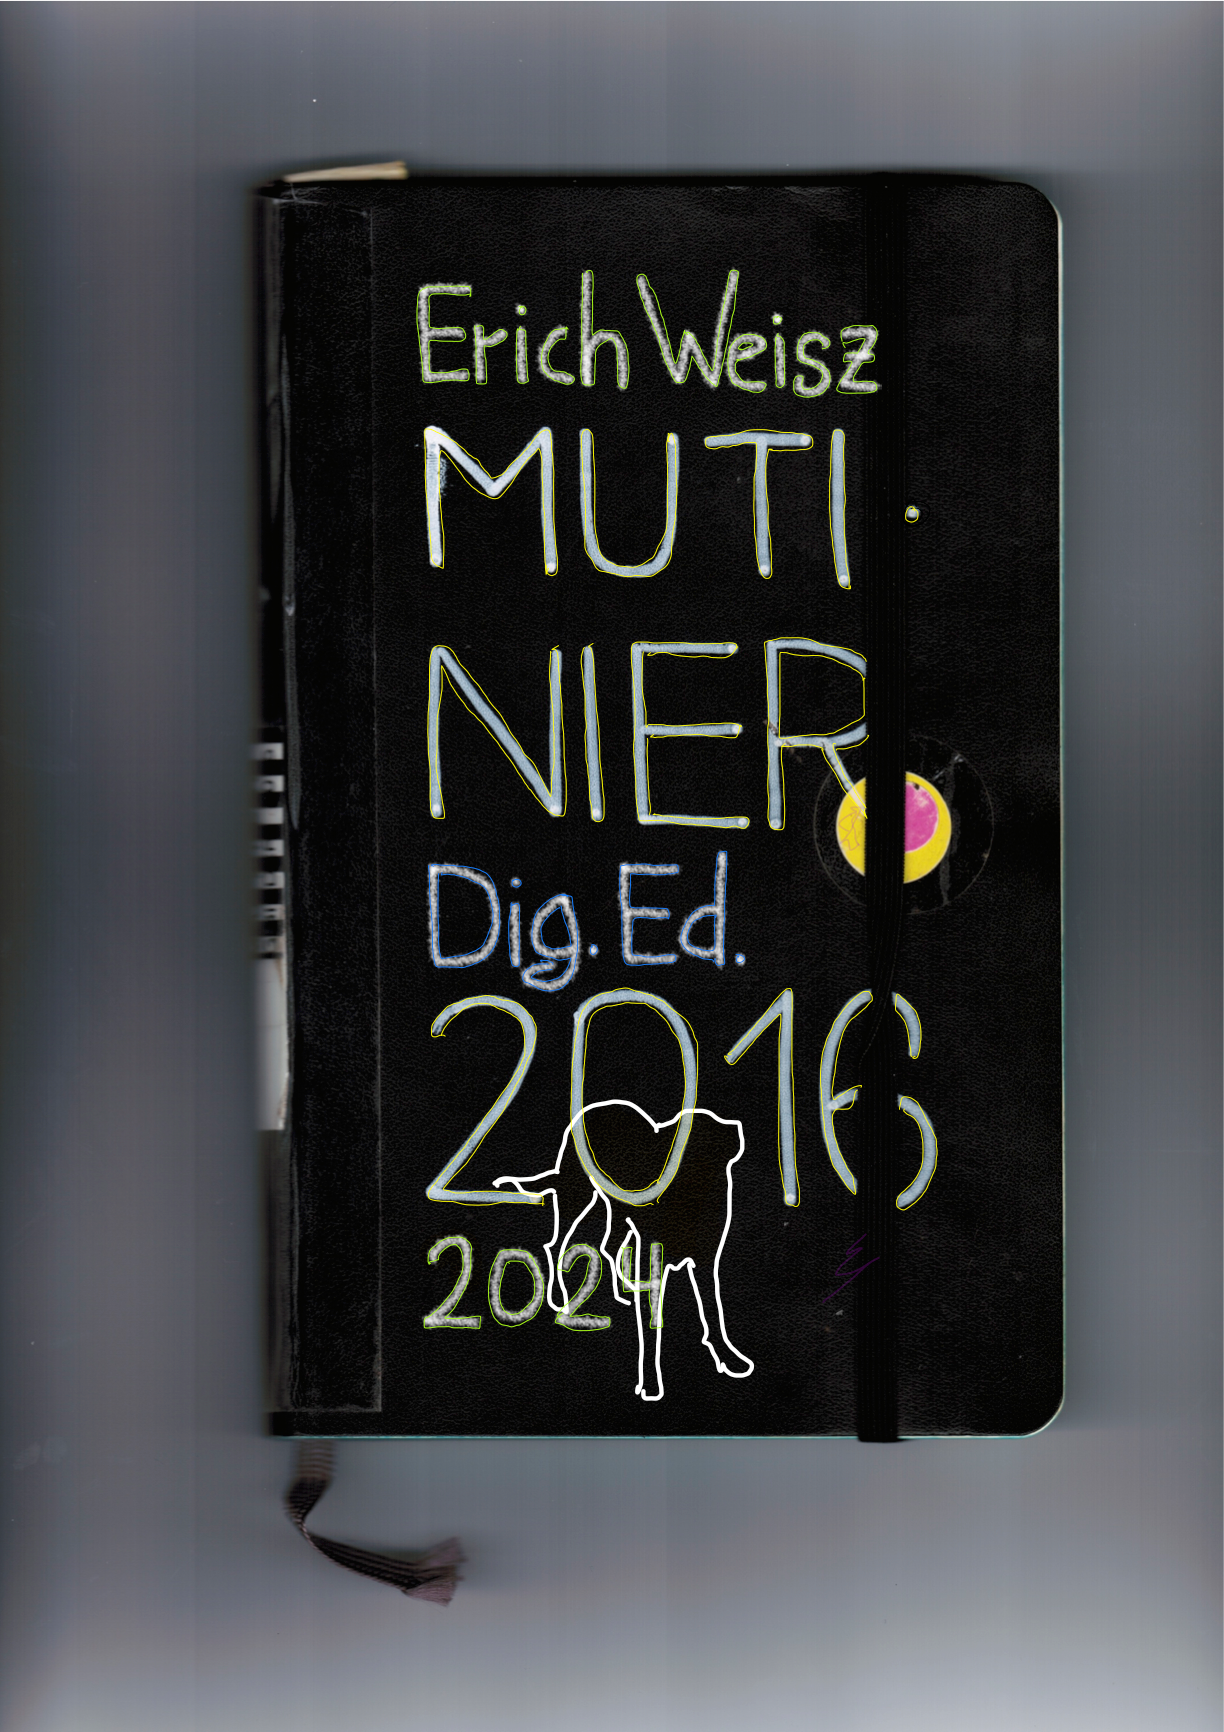 Erich Weisz
MUTI.
NIER
Dig. Ed.
2016
2024